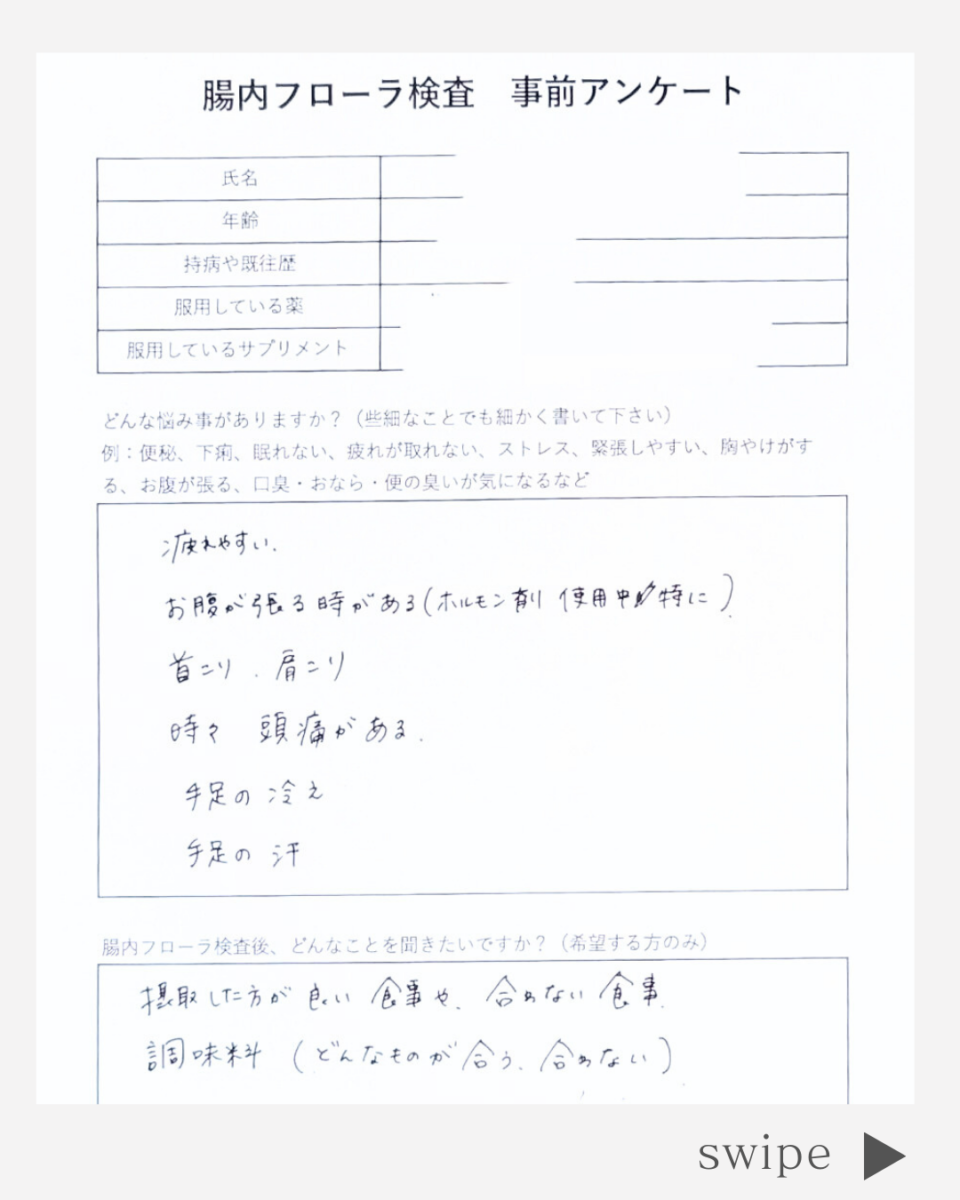 腸内フローラ検査　事前アンケート
氏名
年齢
持病や既往歴
服用している薬
服用しているサプリメント
どんな悩み事がありますか？（些細なことでも細かく書いて下さい）
例：便秘、下痢、眠れない、疲れが取れない、ストレス、緊張しやすい、胸やけがす
る、お腹が張る、口臭・おなら・便の臭いが気になるなど
疲れやすい.
お腹が張る時がある(ホルモン剤 使用中特に)
首こり . 肩こり
時々 頭痛がある.
手足の 冷え
手足の 汗
腸内フローラ検査後、どんなことを聞きたいですか？（希望する方のみ）
摂取した方が 良い 食事や、合わない 食事.
調味料 (どんなものが合う、合わない)
swipe